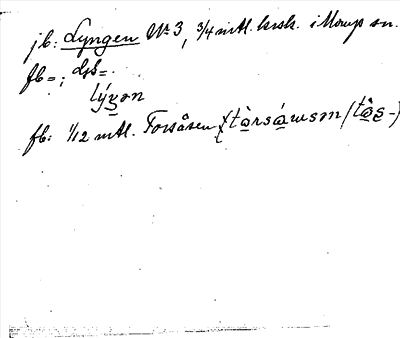 jb: Lyngen No 3, 3/4 mtl. krsk. i Morups sn.
fb =; djb =.
lýŋən
fb: 1/12 mtl. Torsåsen (tòrsáːsən / tòs-)